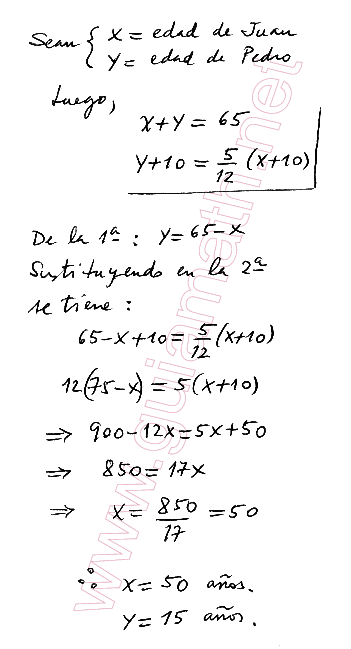 Sean { X = edad de Juan
Y = edad de Pedro
Luego,
X+Y = 65
Y+10 = 5/12 (X+10)
De la 1ª : Y=65-X
Sustituyendo en la 2ª
se tiene :
65-X+10 = 5/12 (X+10)
12(75-X) = 5(X+10)
⇒ 900-12X=5X+50
⇒ 850=17X
⇒ X= 850/17 = 50
∴ X= 50 años.
Y= 15 años.
www.guiamath.net